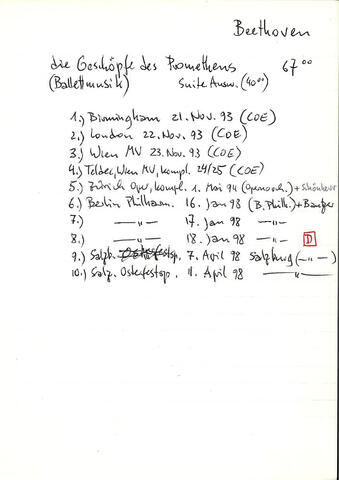 Beethoven
die Geschöpfe des Prometheus 67°°
(Ballettmusik) Suite Ausw. (40°°)
1.) Birmingham 21. Nov. 93 (COE)
2.) London 22. Nov. 93 (COE)
3.) Wien MV 23. Nov. 93 (COE)
4.) Teldec, Wien MV, kompl. 24/25 (COE)
5.) Zürich Oper, kompl. 1. Mai 94 (Opernorch.) +
6.) Berlin Philharm. 16. Jan 98 (B. Philh.) +
7.) —"— 17. Jan 98 —"—
8.) —"— 18. Jan 98 —"— D
9.) Salzb. 7. April 98 Salzburg (—"—)
10.) Salz. Osterfestsp. 11. April 98 —"—